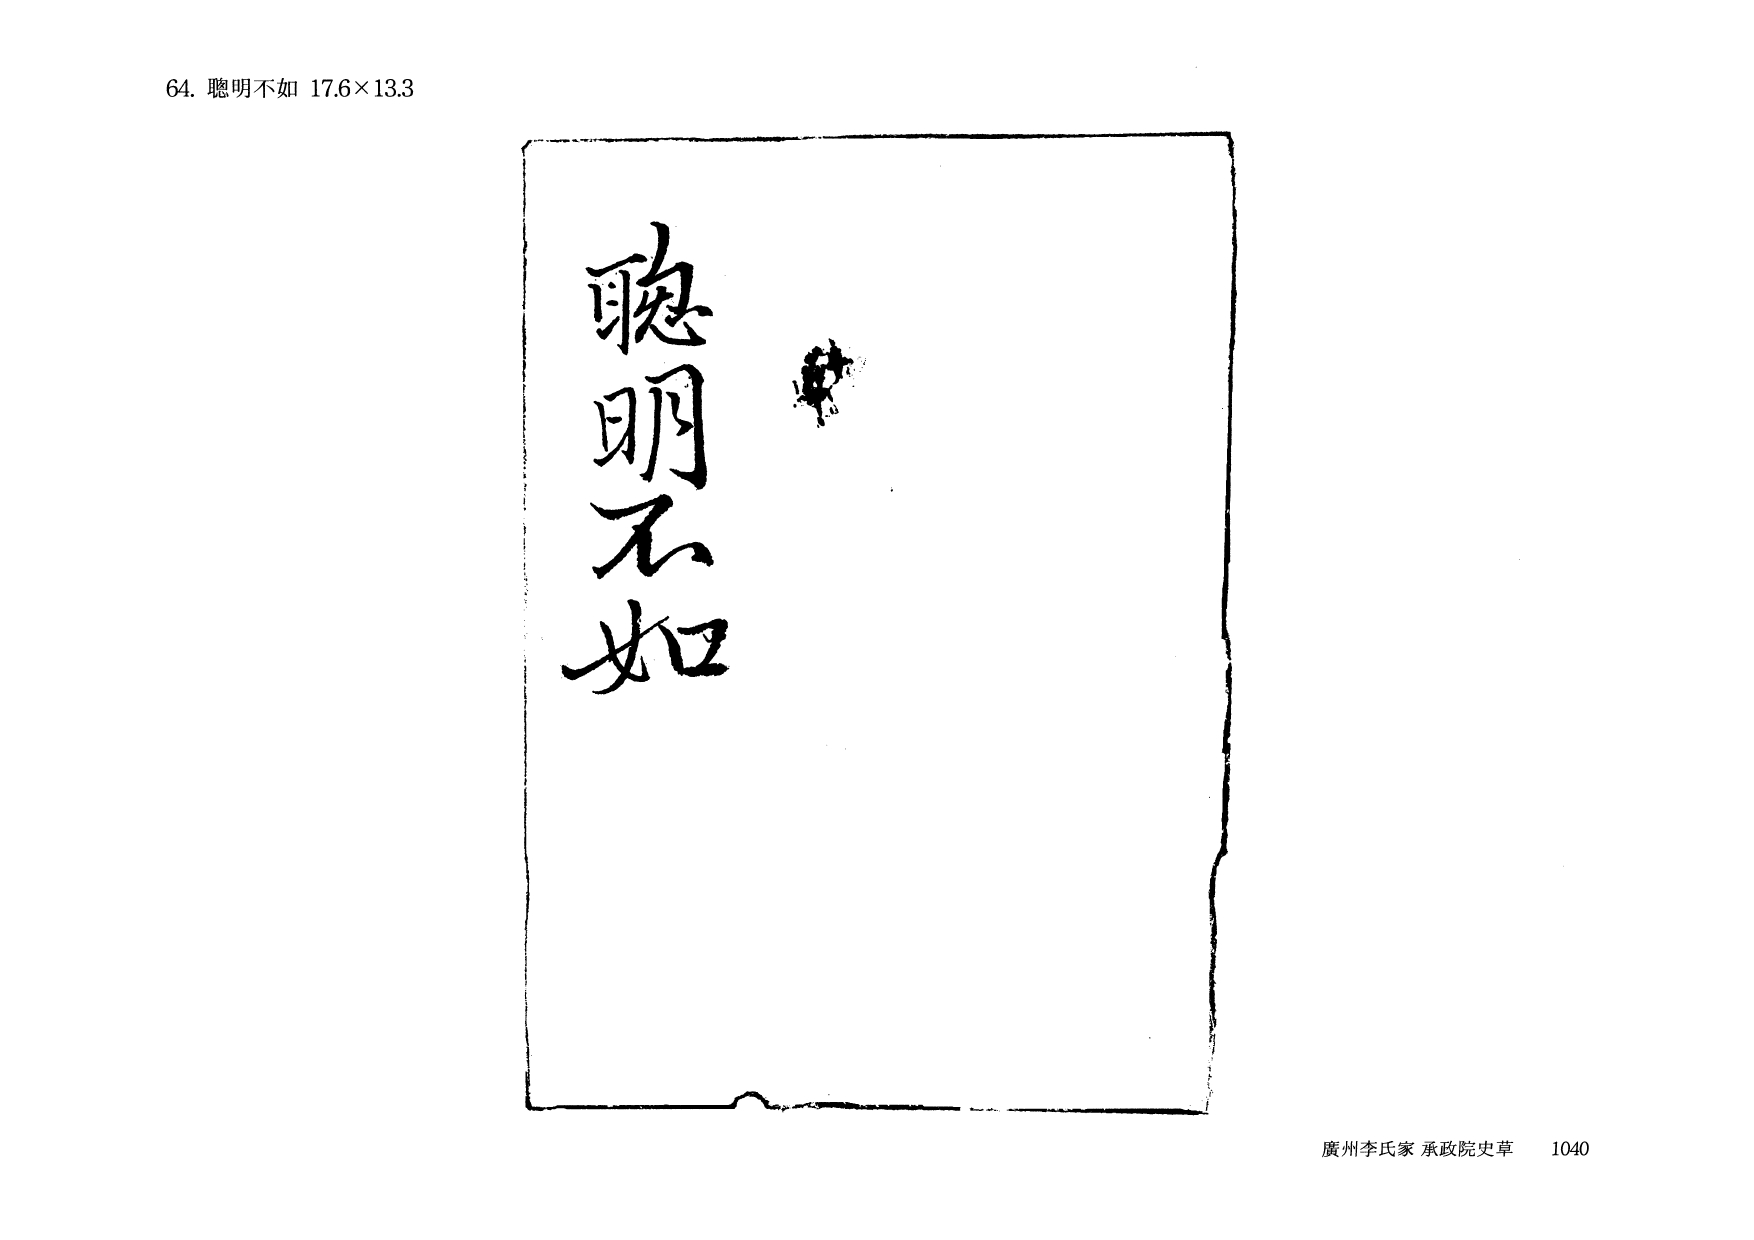 64. 聰明不如 17.6×13.3
聰明不如
廣州李氏家 承政院史草 1040